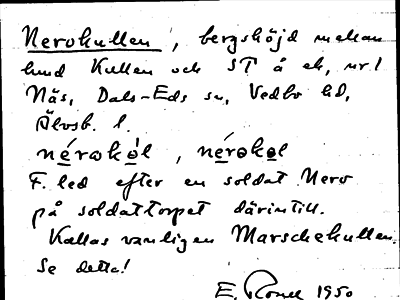 Nerokullen, bergshöjd mellan
hund Kullen och ST å ek, nr 1
Näs, Dals-Eds sn, Vedbo hd,
Älvsb. l.
F. led efter en soldat Nero
på soldattorpet därintill.
Kallas vanligen Marschekullen.
Se detta!
E. 1950